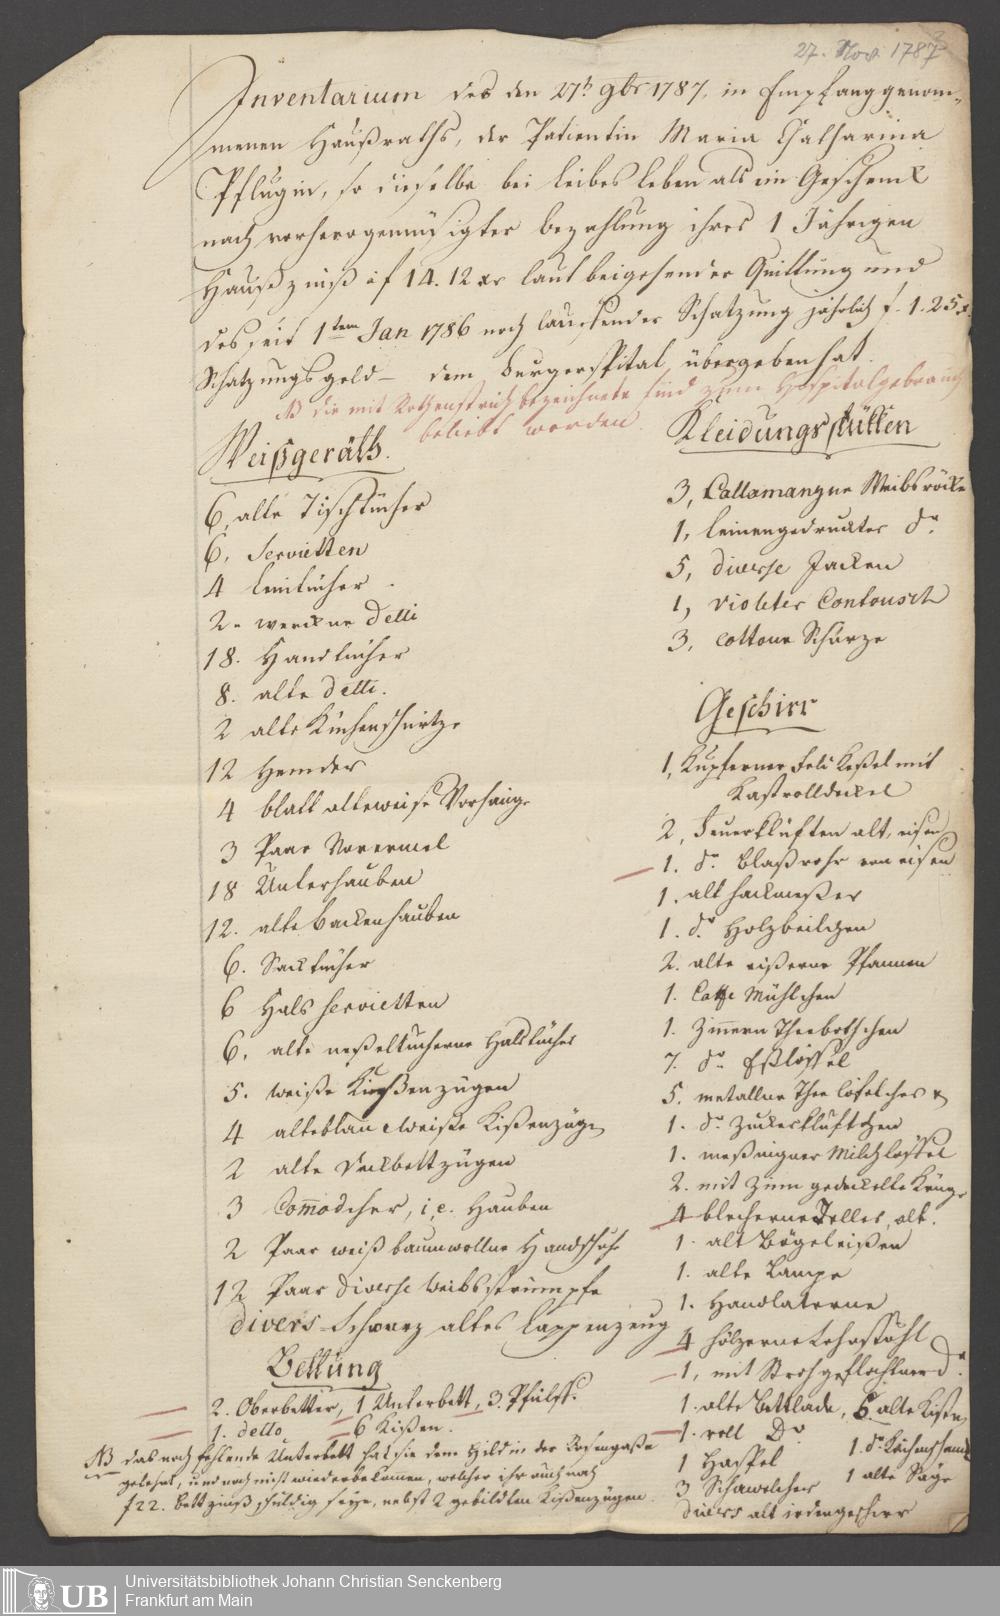 27. Nov. 1787
Inventarium des den 27t. 9br 1787. in Empfang genom-
menen Haußraths, der Patientin Maria Catharina
Pflugin, so dieselbe bei leibes leben als ein Geschenck
nach bezahlung ihres 1 Jährigen
Haußzinß à f 14. 12 xr laut beigehender Quittung und
des seit 1tem Jan 1786 noch laufender Schatzung jährlich f. 1. 25 x.
Schatzungsgeld – dem burgerspital übergeben hat.
NB die mit Rothenstrich bezeichnete sind zum Hospitalgebrauch
beliebt worden.
Weißgeräth.
6, alte Tischtücher
6, Servietten
4 leintücher
2. werckne detti
18. Handtücher
8. alte detti.
2 alte Küchenschürtze
12 Hemder
4 blatt alte weise Vorhänge
3 Paar Vorermel
18 Unterhauben
12. alte backenhauben
6. Sacktücher
6 Hals servietten
6. alte neßeltucherne Halstücher
5. weiße Kießenzügen
4 alte blau & weiße Kißenzüge
2 alte Deckbettzügen
3 Com̄odcher, i, e. Hauben
2 Paar weiß baumwollne Handschuh
12 Paar diverse weibsstrümpfe
divers Schwarz altes lappenzeug
Bettung
2. Oberbetter, 1 Unterbett, 3. Pfülff.
1. detto 6 Kißen.
NB das noch fehlende Unterbett hat sie dem Hild in der Rosengaße
gelehnt, und noch nicht wiederbekommen, welcher ihr auch noch
f 22. bettzinß schuldig seye, nebst 2 gebildten Kißenzügen
Kleidungsstükken
3, Callamangne Weibsröcke
1, leinengedruckter do.
5, diverse Jacken
1, violeter Contousch
3, cottone Schürze
Geschirr
1, Kupferner Feld Keßel mit
Kastrolldeckel
2, Feuerklüften alt, eisen
1. do. Blaßrohr von eisen
1. alt hackmeßer
1. do. Holzbeilchen
2. alte eißerne Pfannen
1. Caffe Mühlchen
1. Zinnern Theebottchen
7. do. Eßlöffel
5. metallne Thee löfelcher &
1. do. Zuckerkluftchen
1. meßingner Milchlöffel
2. mit Zinn gedeckelte Krüge
4 blecherne Teller, alt.
1. alt Bögeleißen
1. alte Lampe
1. Handlaterne
4 hölzerne Lehnstöhl
1, mit Stroh geflochtener do.
1. alte Bettlade, 6. alte Kisten
1. roll Do 1. do. Küchenschanck
1 Haspel 1 alte Säge
3 Schawelcher
divers alt irdengeschirr
Universitätsbibliothek Johann Christian Senckenberg
Frankfurt am Main
UB